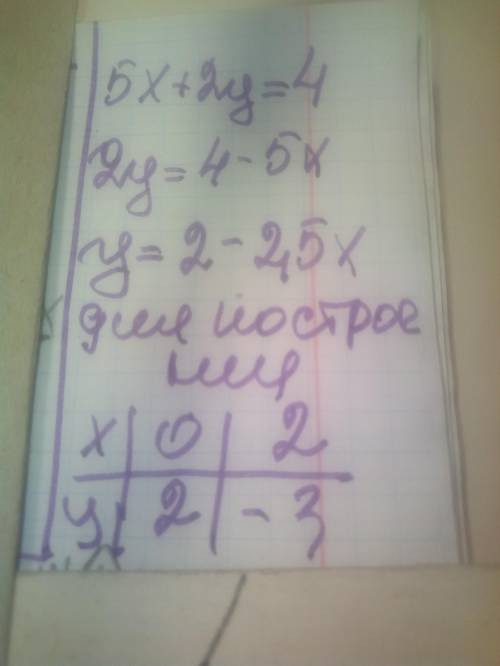 5x+2y=4
2y=4-5x
y=2-2,5x
для построе
ния
x | 0 | 2
y | 2 | -3